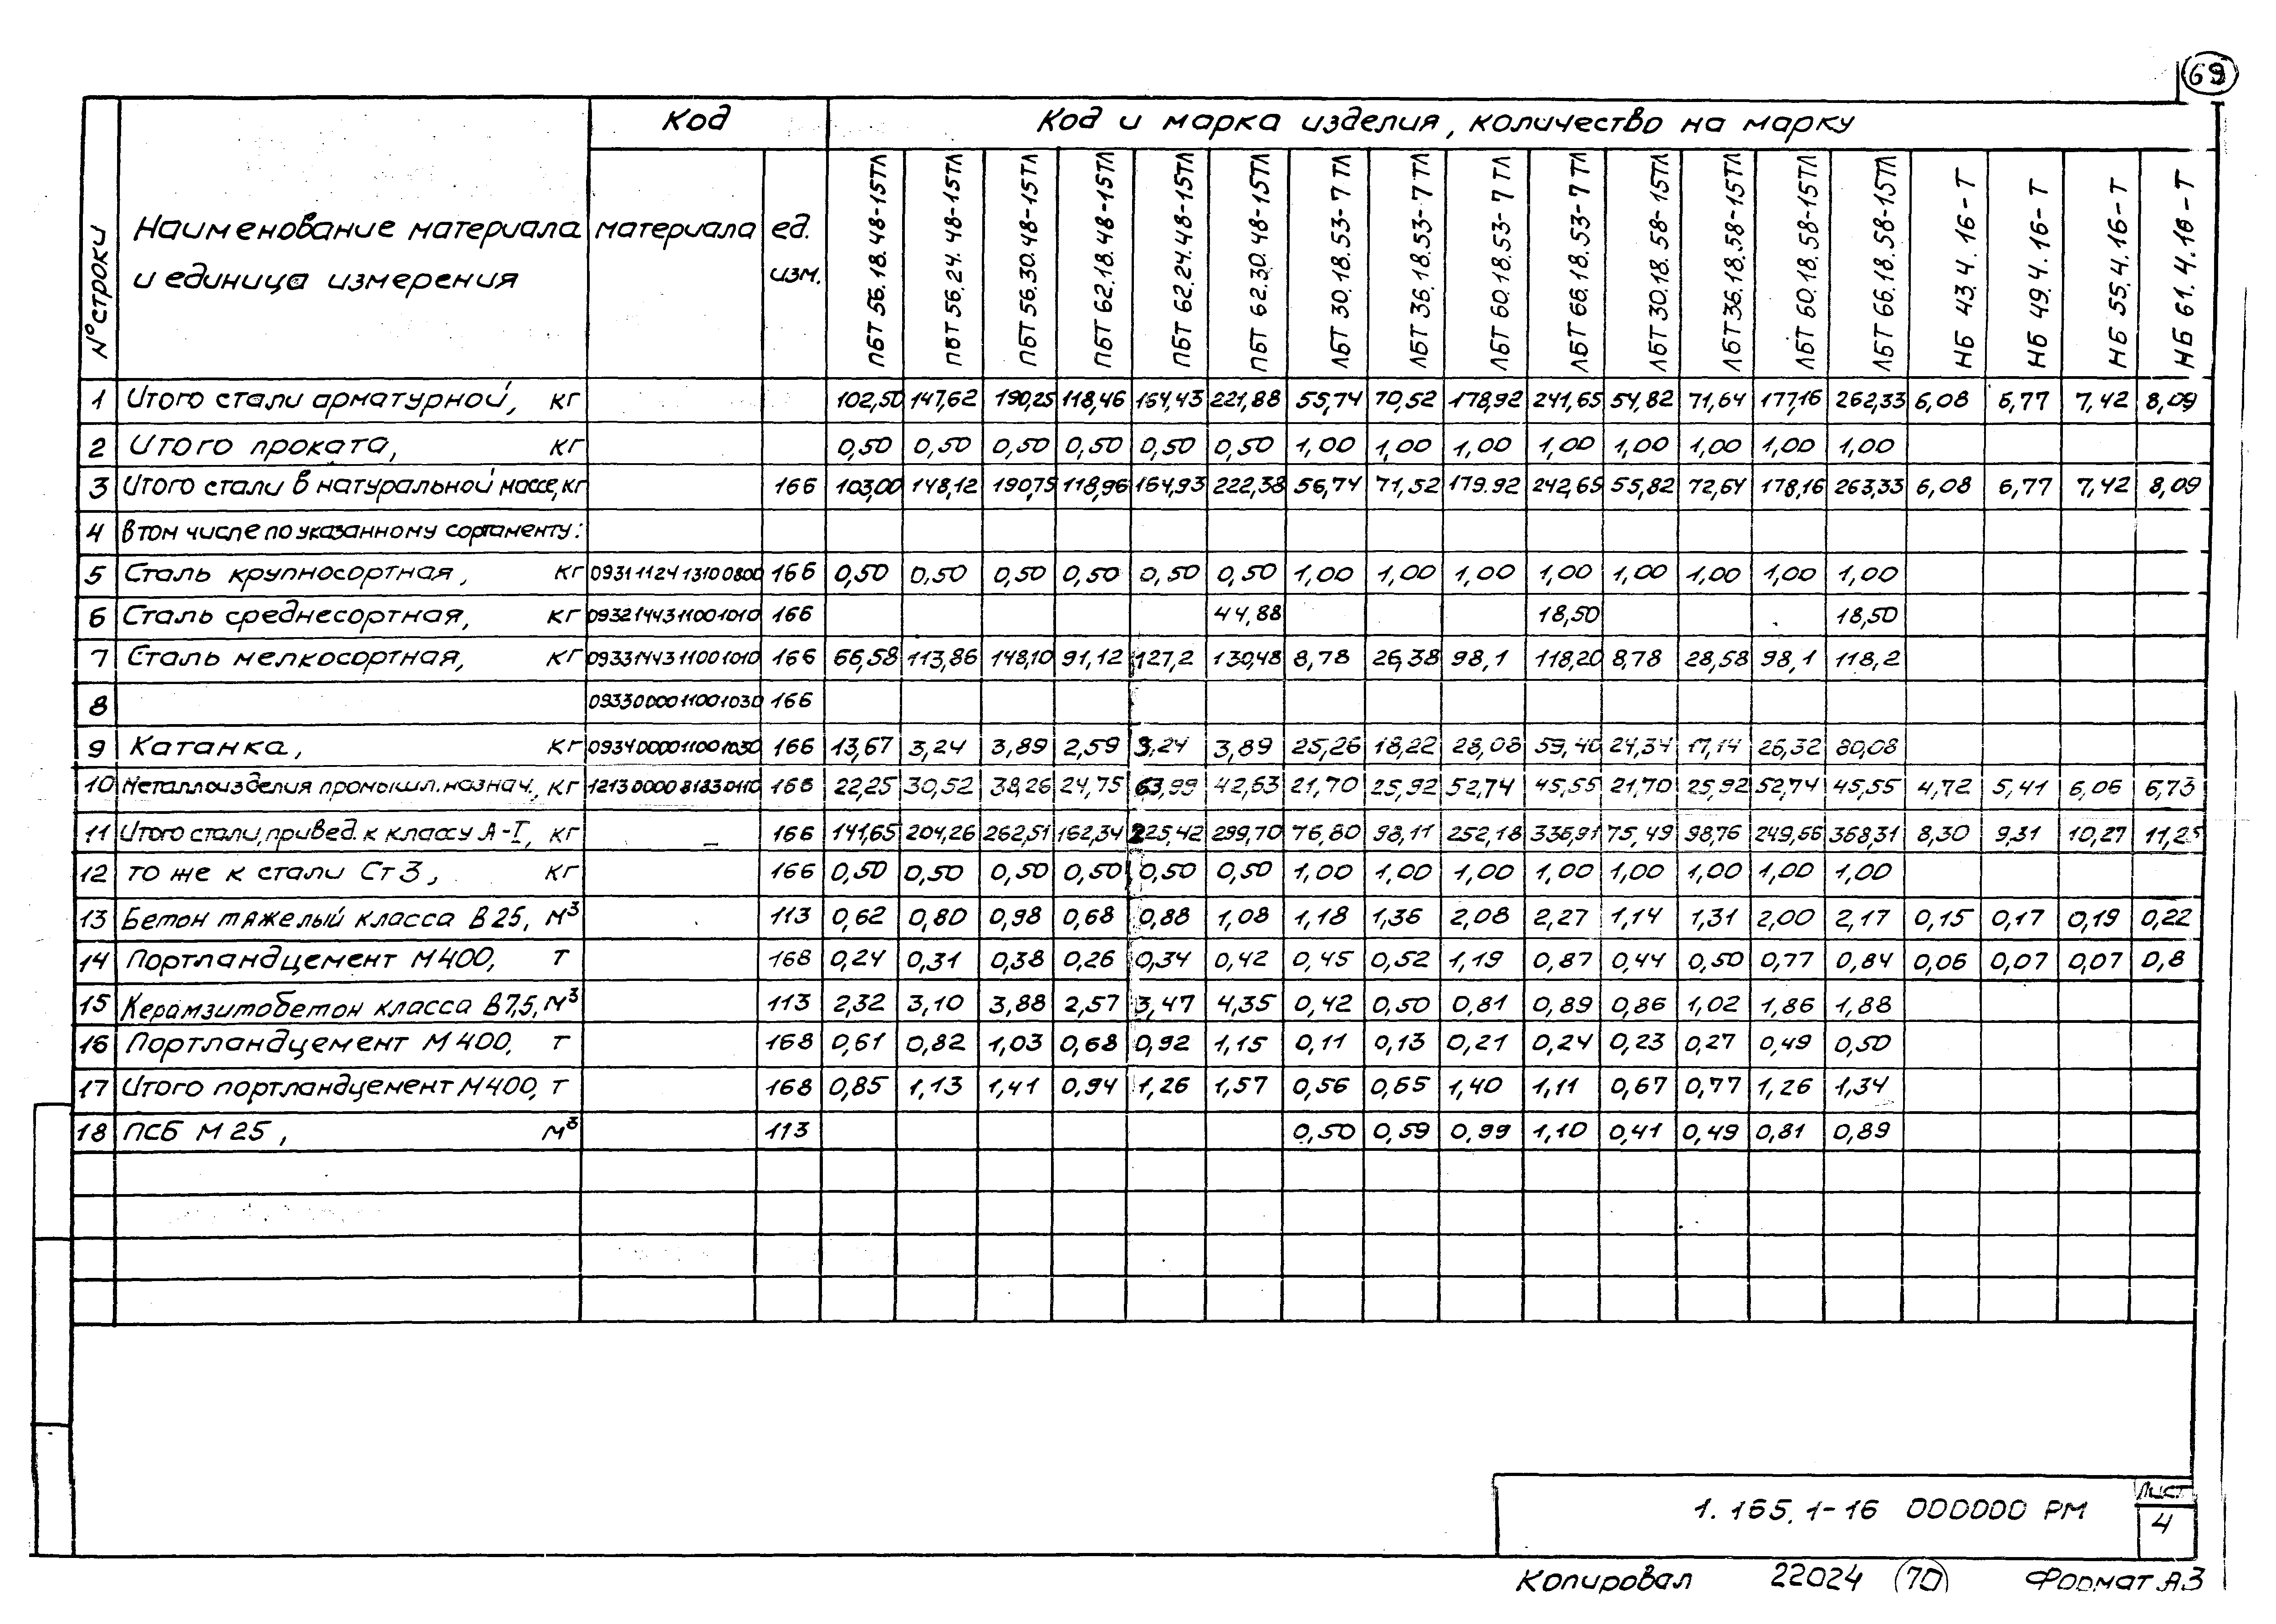 69
Код
Код и марка изделия, количество на марку
№ строки
Наименование материала и единица измерения
материала
ед. изм.
ПБТ 56.18.48-15ТЛ
ПБТ 56.24.48-15ТЛ
ПБТ 56.30.48-15ТЛ
ПБТ 62.18.48-15ТЛ
ПБТ 62.24.48-15ТЛ
ПБТ 62.30.48-15ТЛ
ЛБТ 30.18.53-7ТЛ
ЛБТ 36.18.53-7ТЛ
ЛБТ 60.18.53-7ТЛ
ЛБТ 66.18.53-7ТЛ
ЛБТ 30.18.58-15ТЛ
ЛБТ 36.18.58-15ТЛ
ЛБТ 60.18.58-15ТЛ
ЛБТ 66.18.58-15ТЛ
НБ 43.4.16-Т
НБ 49.4.16-Т
НБ 55.4.16-Т
НБ 61.4.16-Т
1 Итого стали арматурной, кг 102,50 147,62 190,25 118,46 164,43 221,88 55,74 70,52 178,92 241,65 54,82 71,64 177,16 262,33 6,08 6,77 7,42 8,09
2 Итого проката, кг 0,50 0,50 0,50 0,50 0,50 0,50 1,00 1,00 1,00 1,00 1,00 1,00 1,00 1,00
3 Итого стали в натуральной массе, кг 166 103,00 148,12 190,75 118,96 164,93 222,38 56,74 71,52 179.92 242,65 55,82 72,64 178,16 263,33 6,08 6,77 7,42 8,09
4 в том числе по указанному сортаменту:
5 Сталь крупносортная, кг 0931112413100800 166 0,50 0,50 0,50 0,50 0,50 0,50 1,00 1,00 1,00 1,00 1,00 1,00 1,00 1,00
6 Сталь среднесортная, кг 0932144311001010 166 44,88 18,50 18,50
7 Сталь мелкосортная, кг 0933144311001010 166 66,58 113,86 148,10 91,12 127,2 130,48 8,78 26,38 98,1 118,20 8,78 28,58 98,1 118,2
8 0933000011001030 166
9 Катанка, кг 0934000011001030 166 13,67 3,24 3,89 2,59 3,24 3,89 25,26 18,22 28,08 59,40 24,34 17,14 26,32 80,08
10 Металлоизделия промышл. назнач., кг 1213000081330110 166 22,25 30,52 38,26 24,75 63,99 42,63 21,70 25,92 52,74 45,55 21,70 25,92 52,74 45,55 4,72 5,41 6,06 6,73
11 Итого стали, привед. к классу А-I, кг 166 141,65 204,26 262,51 162,34 225,42 299,70 76,80 98,11 252,18 336,91 75,49 98,76 249,66 368,31 8,30 9,31 10,27 11,25
12 то же к стали Ст3, кг 166 0,50 0,50 0,50 0,50 0,50 0,50 1,00 1,00 1,00 1,00 1,00 1,00 1,00 1,00
13 Бетон тяжелый класса В25, м³ 113 0,62 0,80 0,98 0,68 0,88 1,08 1,18 1,36 2,08 2,27 1,14 1,31 2,00 2,17 0,15 0,17 0,19 0,22
14 Портландцемент М400, т 168 0,24 0,31 0,38 0,26 0,34 0,42 0,45 0,52 1,19 0,87 0,44 0,50 0,77 0,84 0,06 0,07 0,07 0,8
15 Керамзитобетон класса В7,5, м³ 113 2,32 3,10 3,88 2,57 3,47 4,35 0,42 0,50 0,81 0,89 0,86 1,02 1,86 1,88
16 Портландцемент М400, т 168 0,61 0,82 1,03 0,68 0,92 1,15 0,11 0,13 0,21 0,24 0,23 0,27 0,49 0,50
17 Итого портландцемент М400, т 168 0,85 1,13 1,41 0,94 1,26 1,57 0,56 0,65 1,40 1,11 0,67 0,77 1,26 1,34
18 ПСБ М25, м³ 113 0,50 0,59 0,99 1,10 0,41 0,49 0,81 0,89
1.165.1-16 000000 РМ
Лист
4
Копировал 22024 70 Формат А3